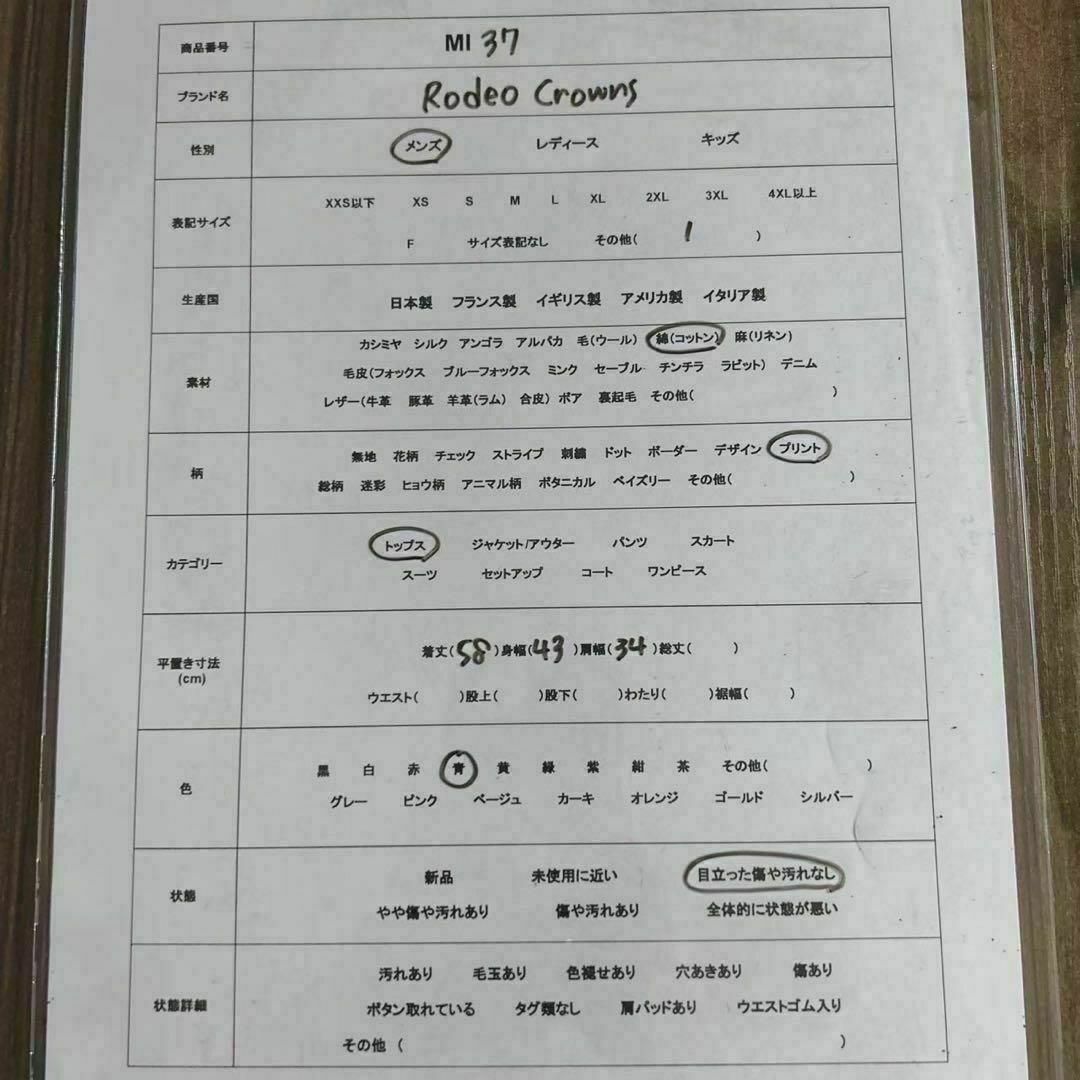 商品番号 MI 37
ブランド名 Rodeo Crowns
性別 メンズ レディース キッズ
表記サイズ
XXS以下 XS S M L XL 2XL 3XL 4XL以上
F サイズ表記なし その他( 1 )
生産国 日本製 フランス製 イギリス製 アメリカ製 イタリア製
素材
カシミヤ シルク アンゴラ アルパカ 毛(ウール) 綿(コットン) 麻(リネン)
毛皮(フォックス ブルーフォックス ミンク セーブル チンチラ ラビット) デニム
レザー(牛革 豚革 羊革(ラム) 合皮) ボア 裏起毛 その他( )
柄
無地 花柄 チェック ストライプ 刺繍 ドット ボーダー デザイン プリント
総柄 迷彩 ヒョウ柄 アニマル柄 ボタニカル ペイズリー その他( )
カテゴリー
トップス ジャケット/アウター パンツ スカート
スーツ セットアップ コート ワンピース
平置き寸法
(cm)
着丈(58)身幅(43)肩幅(34)総丈( )
ウエスト( )股上( )股下( )わたり( )裾幅( )
色
黒 白 赤 青 黄 緑 紫 紺 茶 その他( )
グレー ピンク ベージュ カーキ オレンジ ゴールド シルバー
状態
新品 未使用に近い 目立った傷や汚れなし
やや傷や汚れあり 傷や汚れあり 全体的に状態が悪い
状態詳細
汚れあり 毛玉あり 色褪せあり 穴あきあり 傷あり
ボタン取れている タグ類なし 肩パッドあり ウエストゴム入り
その他 ( )